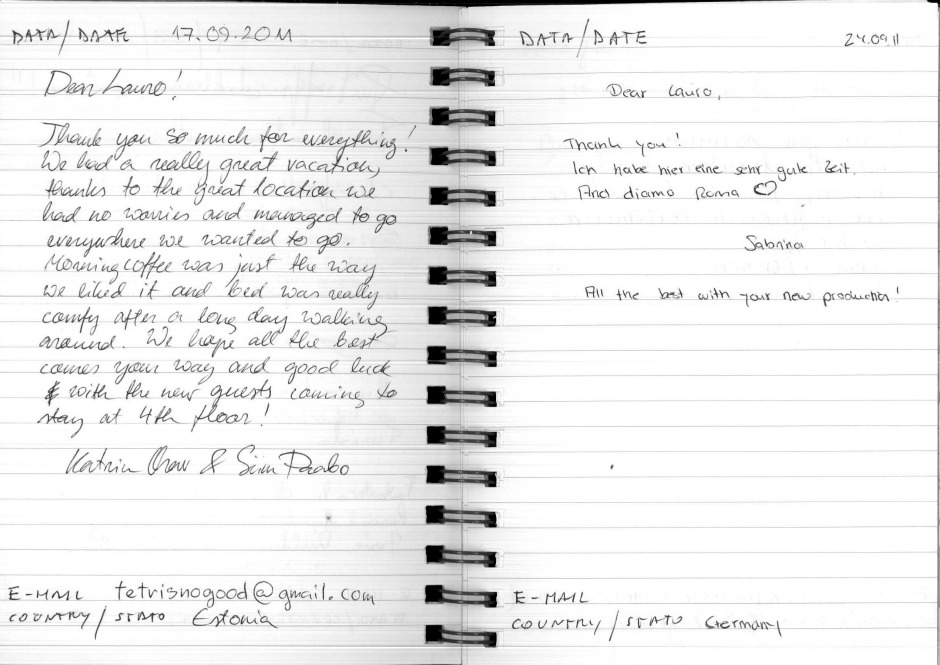 DATA/DATE 17.09.2011
Dear Lauro!
Thank you so much for everything!
We had a really great vacation,
thanks to the great location we
had no worries and managed to go
everywhere we wanted to go.
Morningcoffee was just the way
we liked it and bed was really
comfy after a long day walking
around. We hope all the best
comes your way and good luck
with the new guests coming to
stay at 4th floor!
Katrin Orav & Siim Paabo
E-MAIL tetrisnogood@gmail.com
COUNTRY/STATO Estonia
DATA/DATE 24.09.11
Dear Lauro,
Thank you!
Ich habe hier eine sehr gute Zeit.
And diamo Roma ♡
Sabrina
All the best with your new production!
E-MAIL
COUNTRY/STATO Germany